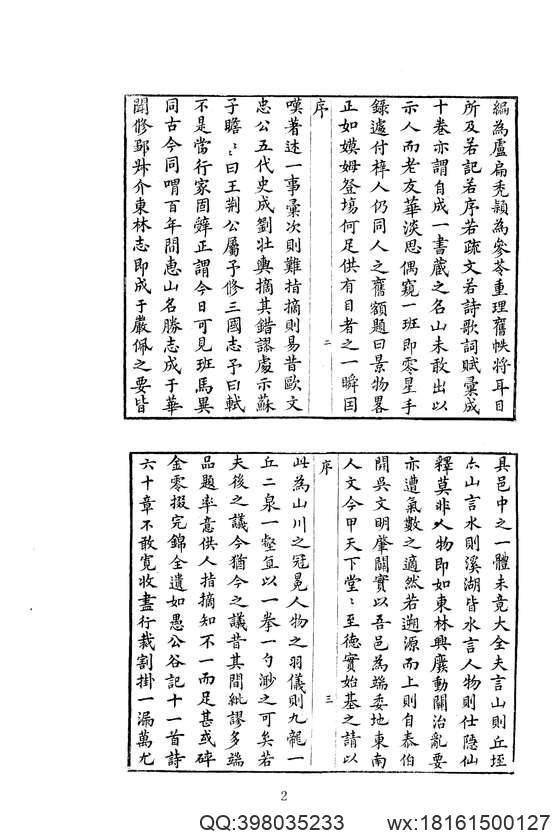 編為盧扁禿穎為參苓重理舊帙將耳目
所及若記若序若疏文若詩歌詞賦彙成
十卷亦謂自成一書藏之名山未敢出以
示人而老友華淡思偶窺一班即零星手
錄遽付梓人仍同人之舊額題曰景物畧
正如嫫姆登場何足供有目者之一瞬囯
序
二
嘆著述一事彙次則難指摘則易昔歐文
忠公五代史成劉壯輿摘其錯謬處示蘇
子瞻﹕曰王荆公屬予修三國志予曰軾
不是當行家固辤正謂今日可見班馬異
同古今同喟百年間惠山名勝志成于華
聞修鄒叔介東林志即成于嚴佩之要皆
具邑中之一體未竟大全夫言山則丘垤
亦山言水則溪湖皆水言人物則仕隱仙
釋莫非人物即如東林興廢動關治亂要
亦遭氣數之適然若遡源而上則自泰伯
開吳文明肇闢實以吾邑為端委地東南
人文今甲天下堂﹕至德實始基之請以
序
三
此為山川之冠冕人物之羽儀則九龍一
丘二泉一壑直以一拳一勺渺之可矣若
夫後之議今猶今之議昔其間紕謬多端
品題率意供人指摘知不一而足甚或碎
金零掇完錦全遺如愚公谷記十一首詩
六十章不敢寛收盡行裁割掛一漏萬尤
2
QQ:398035233
wx:18161500127